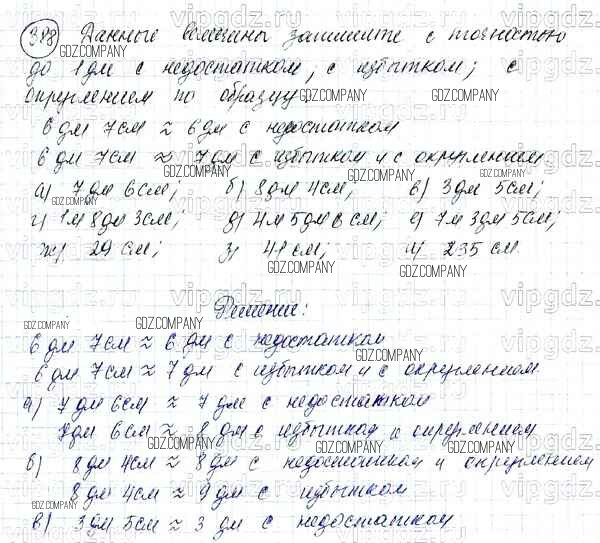 318 Данные величины запишите с точностью
до 1 дм с недостатком; с избытком; с
округлением по образцу
6 дм 7 см ≈ 6 дм с недостатком
6 дм 7 см ≈ 7 дм с избытком и с округлением
а) 7 дм 6 см; б) 8 дм 4 см; в) 3 дм 5 см;
г) 1 м 8 дм 3 см; д) 4 м 5 дм 6 см; е) 7 м 3 дм 5 см;
ж) 29 см; з) 41 см; и) 235 см
Решение:
6 дм 7 см ≈ 6 дм с недостатком
6 дм 7 см ≈ 7 дм с избытком и с округлением
а) 7 дм 6 см ≈ 7 дм с недостатком
7 дм 6 см ≈ 8 дм с избытком и округлением
б) 8 дм 4 см ≈ 8 дм с недостатком и округлением
8 дм 4 см ≈ 9 дм с избытком
в) 3 дм 5 см ≈ 3 дм с недостатком
GDZ.COMPANY
vipgdz.ru